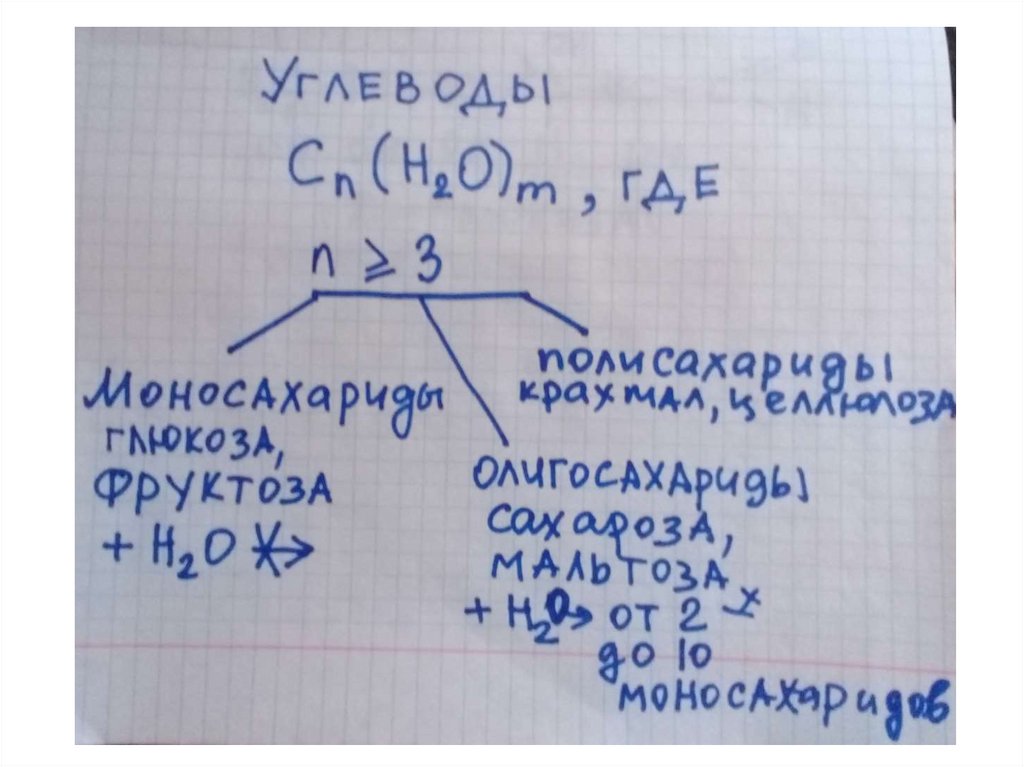 УГЛЕВОДЫ
Cn(H2O)m, ГДЕ
n ⩾ 3
Моносахариды
глюкоза,
фруктоза
+ H2O
полисахариды
крахмал, целлюлоза
олигосахариды
сахароза,
мальтоза
+ H2O → от 2-х
до 10
моносахаридов